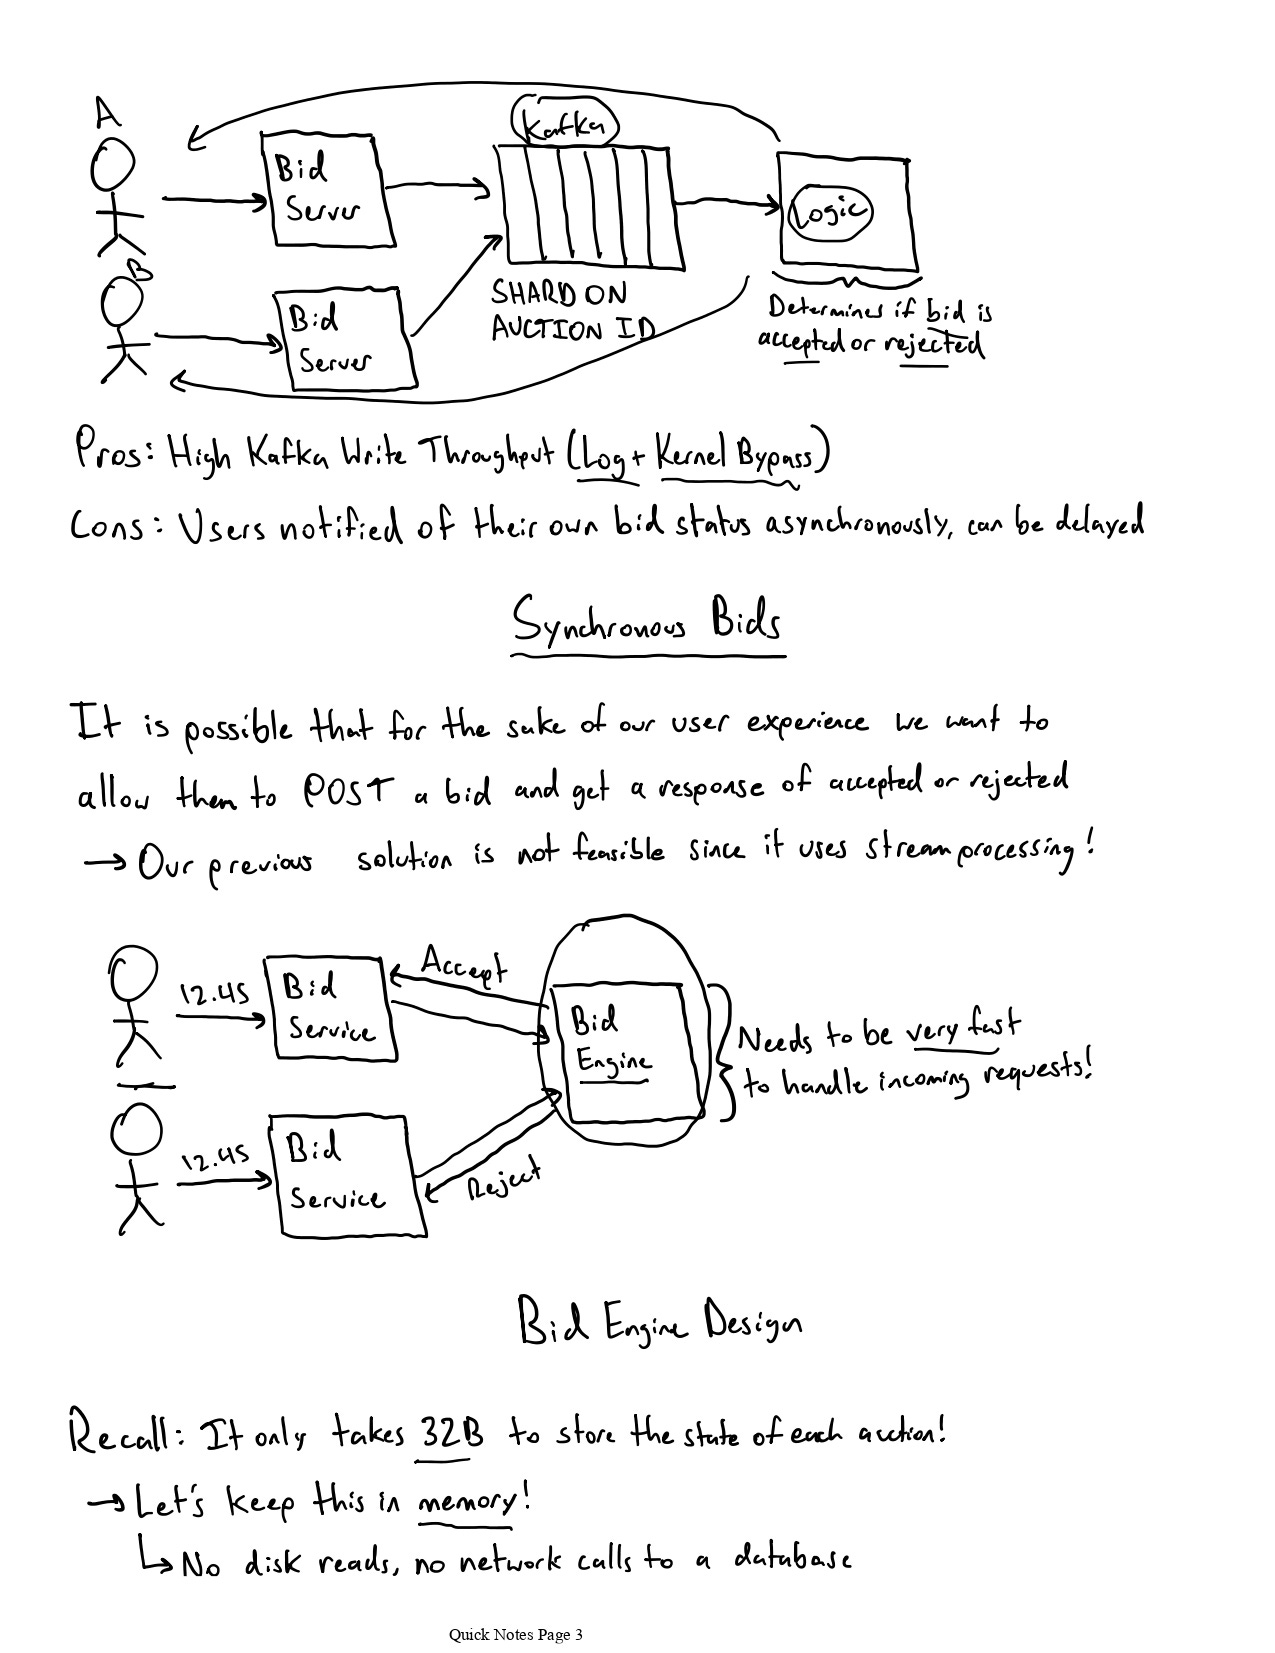 A
Kafka
Bid
Server
Logic
B
SHARD ON
AUCTION ID
Bid
Server
Determines if bid is
accepted or rejected
Pros: High Kafka Write Throughput (Log + Kernel Bypass)
Cons: Users notified of their own bid status asynchronously, can be delayed
Synchronous Bids
It is possible that for the sake of our user experience we want to
allow them to POST a bid and get a response of accepted or rejected
→ Our previous solution is not feasible since it uses stream processing!
12.45
Bid
Service
Accept
Bid
Engine
Needs to be very fast
to handle incoming requests!
12.45
Bid
Service
Reject
Bid Engine Design
Recall: It only takes 32B to store the state of each auction!
→ Let's keep this in memory!
↳ No disk reads, no network calls to a database
Quick Notes Page 3